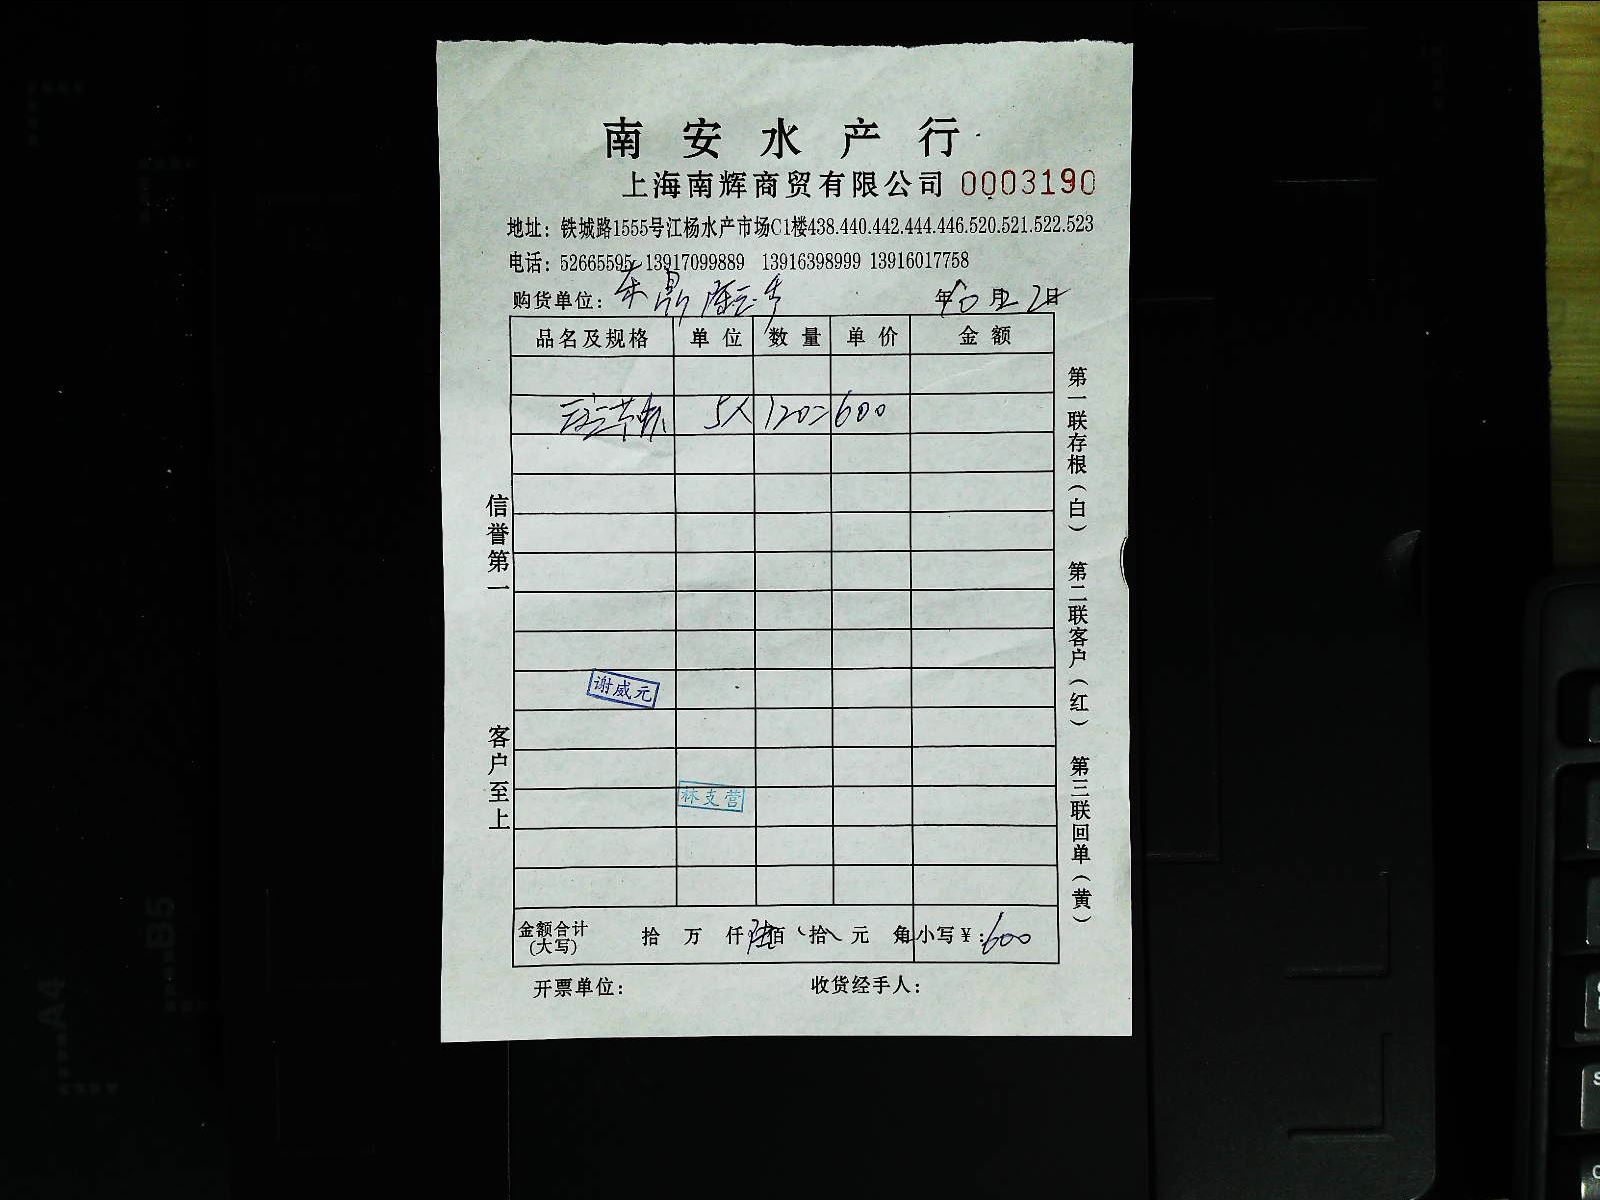 南安水产行
上海南辉商贸有限公司 0003190
地址：铁城路1555号江杨水产市场C1楼438.440.442.444.446.520.521.522.523
电话：52665595 13917099889 13916398999 13916017758
购货单位：东鼎 年 10 月 22 日
品名及规格 单位 数量 单价 金额
5× 120=600
信誉第一
客户至上
谢威元
林支营
第一联存根（白） 第二联客户（红） 第三联回单（黄）
金额合计（大写） 拾 万 仟 陆佰 拾 元 角 小写￥：600
开票单位： 收货经手人：
A4
B5